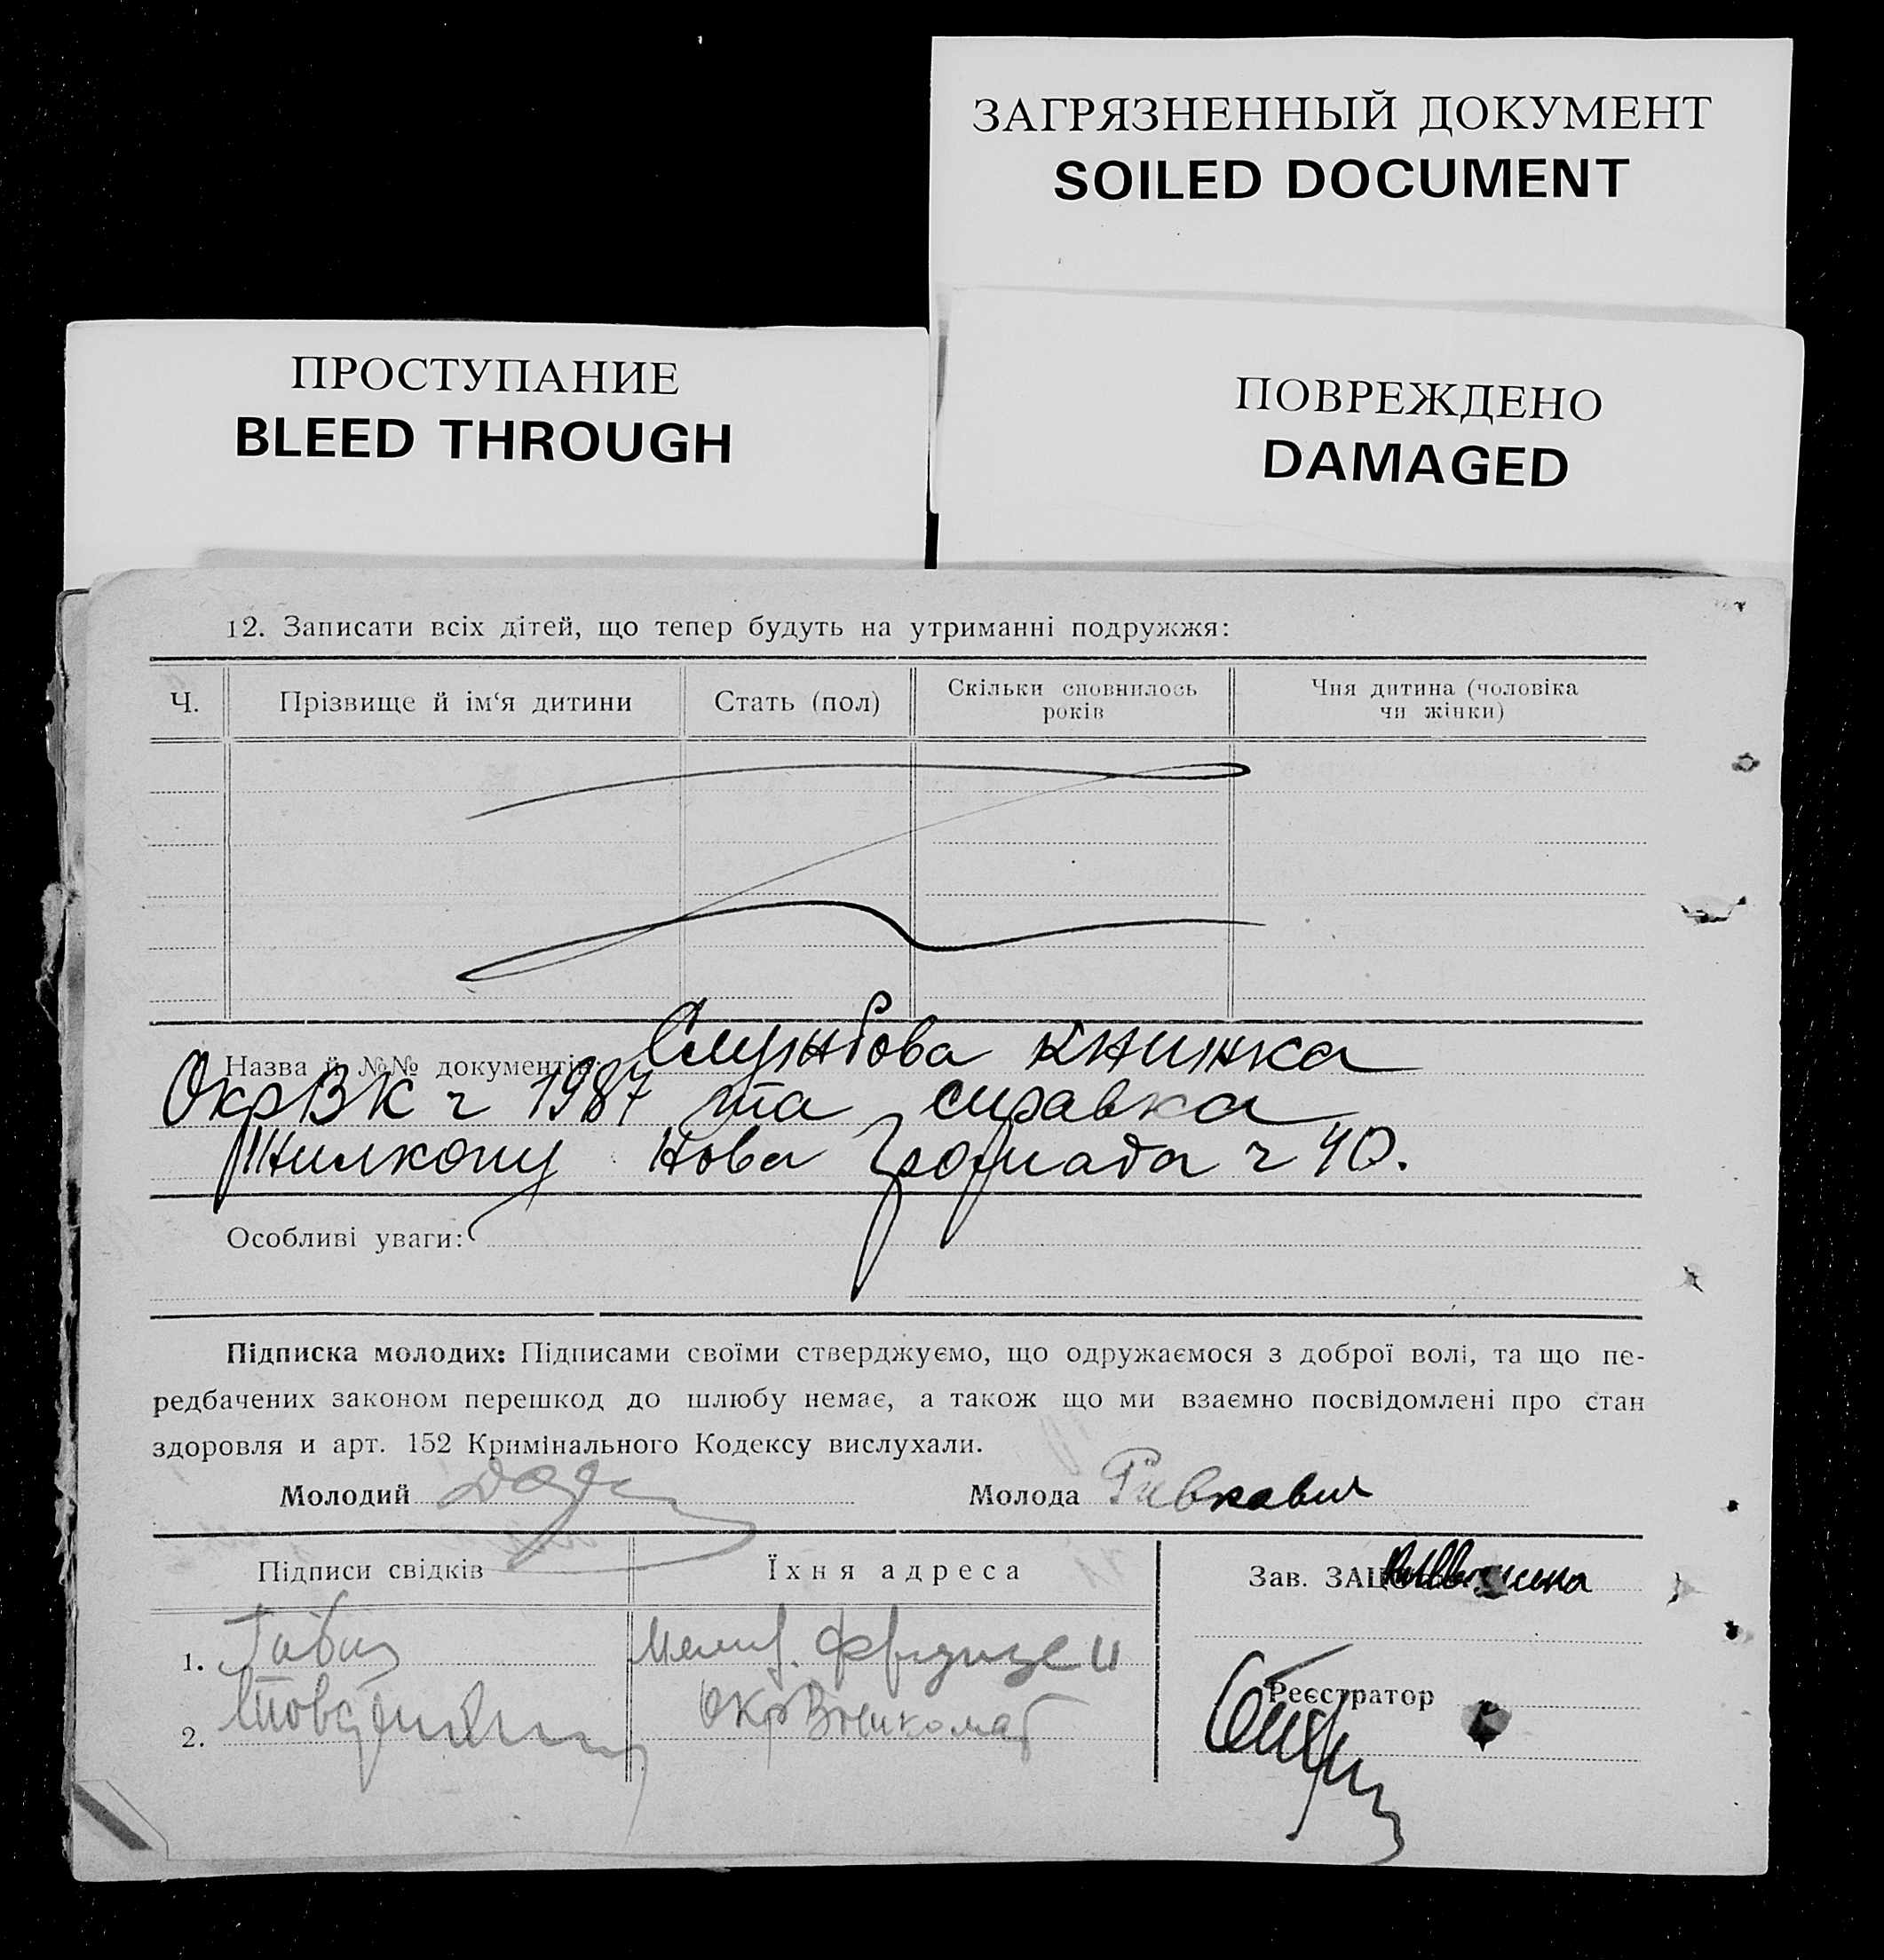 ЗАГРЯЗНЕННЫЙ ДОКУМЕНТ
SOILED DOCUMENT
ПРОСТУПАНИЕ
BLEED THROUGH
ПОВРЕЖДЕНО
DAMAGED
12. Записати всіх дітей, що тепер будуть на утриманні подружжя:
Ч. Прізвище й ім‘я дитини Стать (пол) Скільки сповнилось років Чия дитина (чоловіка чи жінки)
Назва й №№ документів: Службова книжка
ОкрВК ч 1987 та справка
Жилкопу Нова Громада ч 40.
Особливі уваги:
Підписка молодих: Підписами своїми стверджуємо, що одружаємося з доброї волі, та що пе-
редбачених законом перешкод до шлюбу немає, а також що ми взаємно посвідомлені про стан
здоровля и арт. 152 Кримінального Кодексу вислухали.
Молодий Молода Ривкович
Підписи свідків Їхня адреса Зав. ЗАГС
1.
Реєстратор
2. ОкрВоенкомат